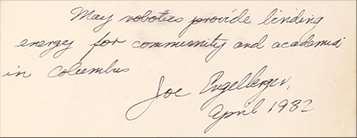 May robotics provide binding
energy for community and academia
in Columbus
Joe Engelberger,
April 1982